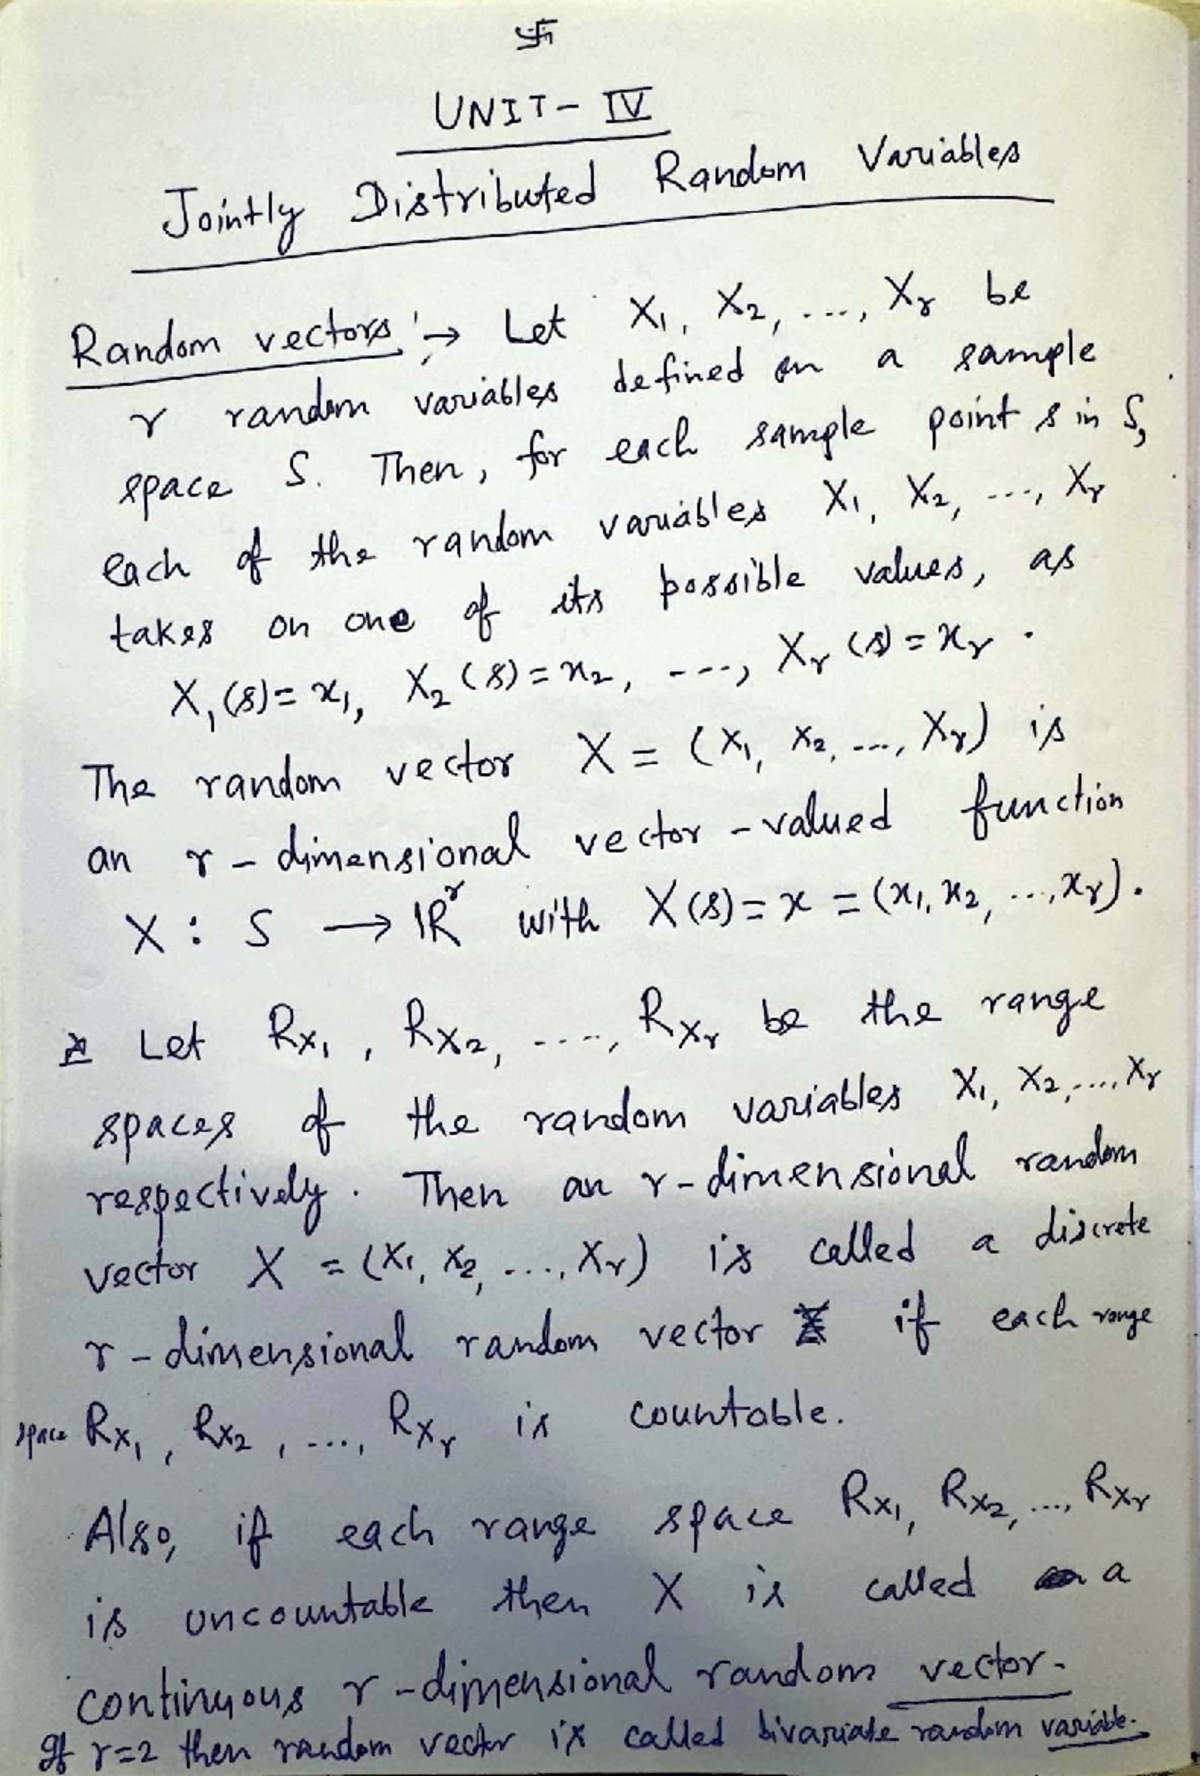 卐
UNIT- IV
Jointly Distributed Random Variables
Random vectors :→ Let X₁, X₂, ..., Xᵣ be
r random variables defined on a sample
space S. Then, for each sample point s in S,
each of the random variables X₁, X₂, ..., Xᵣ
takes on one of its possible values, as
X₁(s)=x₁, X₂(s)=x₂, ---, Xᵣ(s)=xᵣ.
The random vector X = (X₁, X₂, ..., Xᵣ) is
an r-dimensional vector-valued function
X : S → ℝʳ with X(s)=x=(x₁, x₂, ..., xᵣ).
* Let R_X₁, R_X₂, ...., R_Xᵣ be the range
spaces of the random variables X₁, X₂, ...., Xᵣ
respectively. Then an r-dimensional random
vector X = (X₁, X₂, ..., Xᵣ) is called a discrete
r-dimensional random vector if each range
space R_X₁, R_X₂, ..., R_Xᵣ is countable.
Also, if each range space R_X₁, R_X₂, ..., R_Xᵣ
is uncountable then X is called a
continuous r-dimensional random vector.
If r=2 then random vector is called bivariate random variable.